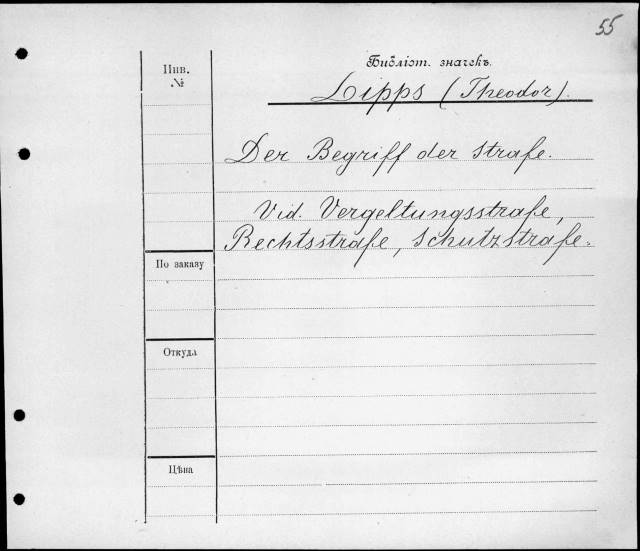 55
Библіот. значекъ.
Инв.
№
Lipps (Theodor).
Der Begriff der Strafe.
Vid. Vergeltungsstrafe,
Rechtsstrafe, Schutzstrafe.
По заказу
Откуда
Цѣна